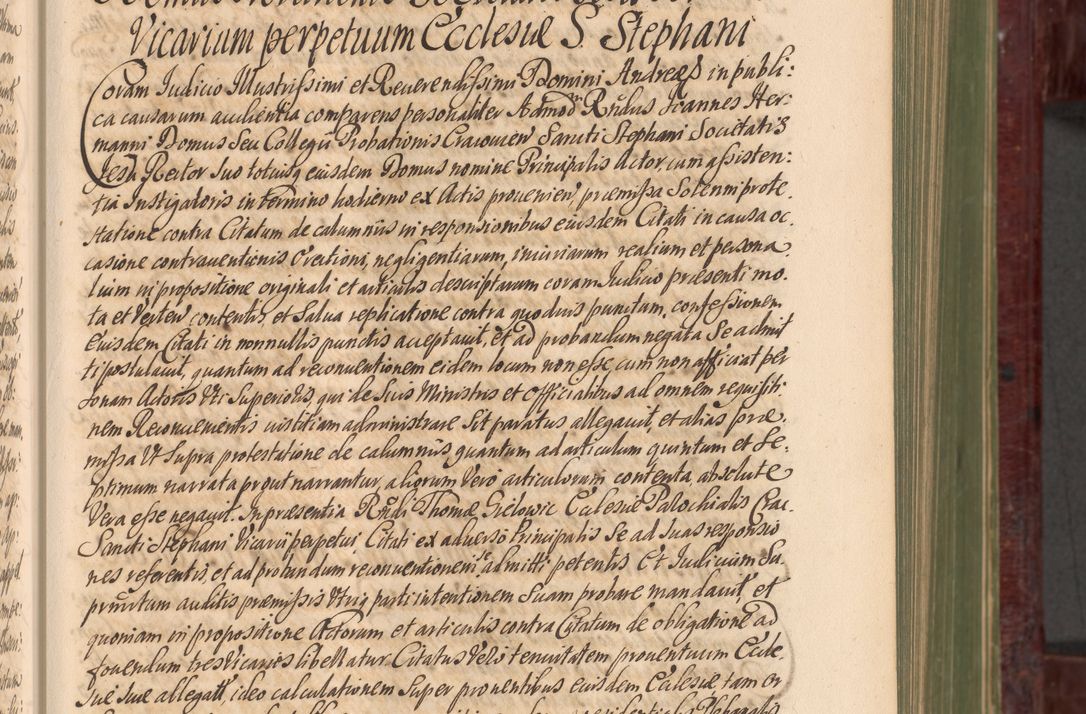 Vicarium perpetuum Ecclesiæ S. Stephani
Coram Iudicio Illustrissimi et Reuerendissimi Domini Andreæ in publi:
ca causarum audientia comparens personaliter Admod. Rndus Ioannes Her:
manni Domus Seu Collegii Probationis Cracouien Sancti Stephani Societatis
Jesu Rector suo totiusq eiusdem Domus nomine Principalis Actor, cum assisten:
tia Instigatoris in termino hodierno ex Actis prouenien, præmissa Solenni prote.
statione contra Citatum de calumniis in responsionibus eiusdem Citati in causa oc.
casione contrauentionis Erectioni, negligentiarum, iniuriarum realium et persona
lium in propositione originali et articulis descriptarum coram Iudicio præsenti mo.
ta et Verten contentis, et Salua replicatione contra quoduis punctum, confessionem
Eiusdem Citati in nonnullis punctis acceptauit, et ad probandum negata Se admit
ti postulauit, quantum ad reconuentionem eidem locum non esse, cum non afficiat per
sonam Actoris Uti Superioris, qui de Suis Ministris et Officialibus ad omnem requisiti.
nem Reconuenientis iustitiam administrare Sit paratus allegauit, et alias præ
missa Ut Supra protestatione de calumniis quantum ad articulum quintum et Se.
ptimum narrata prout narrantur, aliorum Vero articulorum contenta, absolute
Vera esse negauit. In præsentia Rndi Thomæ Ecclesiæ Parochialis Crac.
Sancti Stephani Vicarii perpetui, Citati ex aduerso Principalis Se ad Suas responsio
nes referentis, et ad probandum reconuentionem se admitti petentis Et Iudicium Su
prascriptum auditis præmissis Utriq parti intentionem Suam probare mandauit, et
quoniam in propositione Actorum et articulis contra Citatum de obligatione ad
fouendum tres Vicarios libellatur. Citatus Vero tenuitatem prouentuum Eccle
siæ Suæ allegat, ideo calculationem Super prouentibus eiusdem Ecclesiæ tam